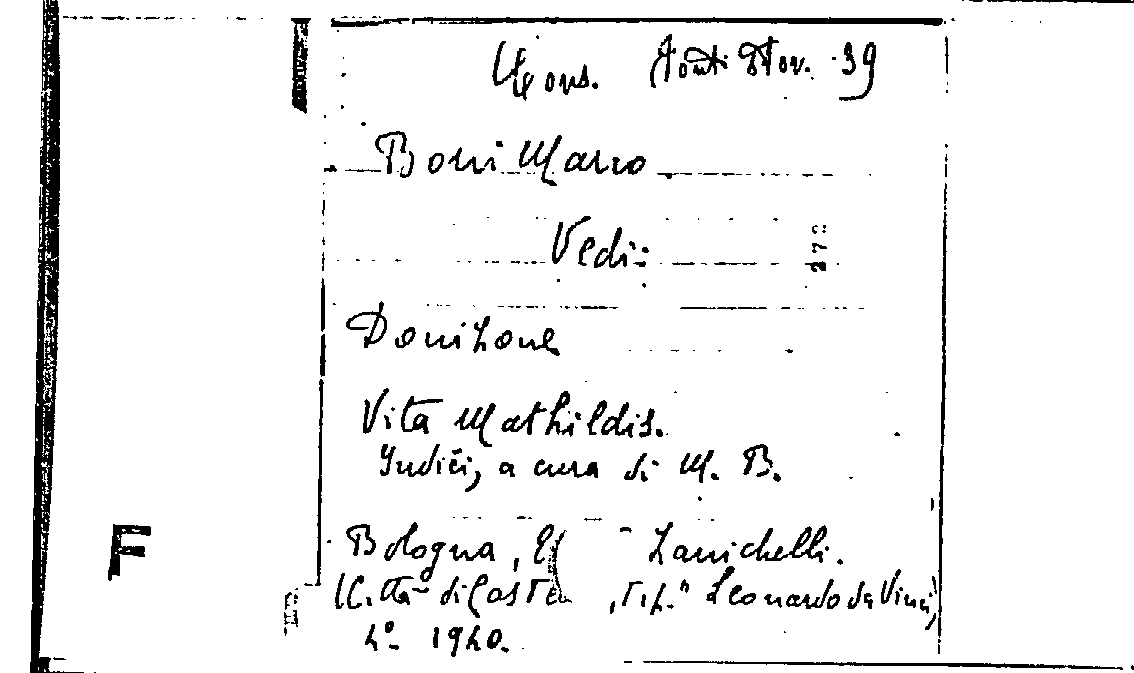 Cons. Fonti Stor. 39
Boni Marco
Vedi:
272
Donizone
Vita Mathildis.
Indici, a cura di M. B.
F
Bologna, Zanichelli.
(Città di Castello, Tip. "Leonardo da Vinci)
4º. 1940.